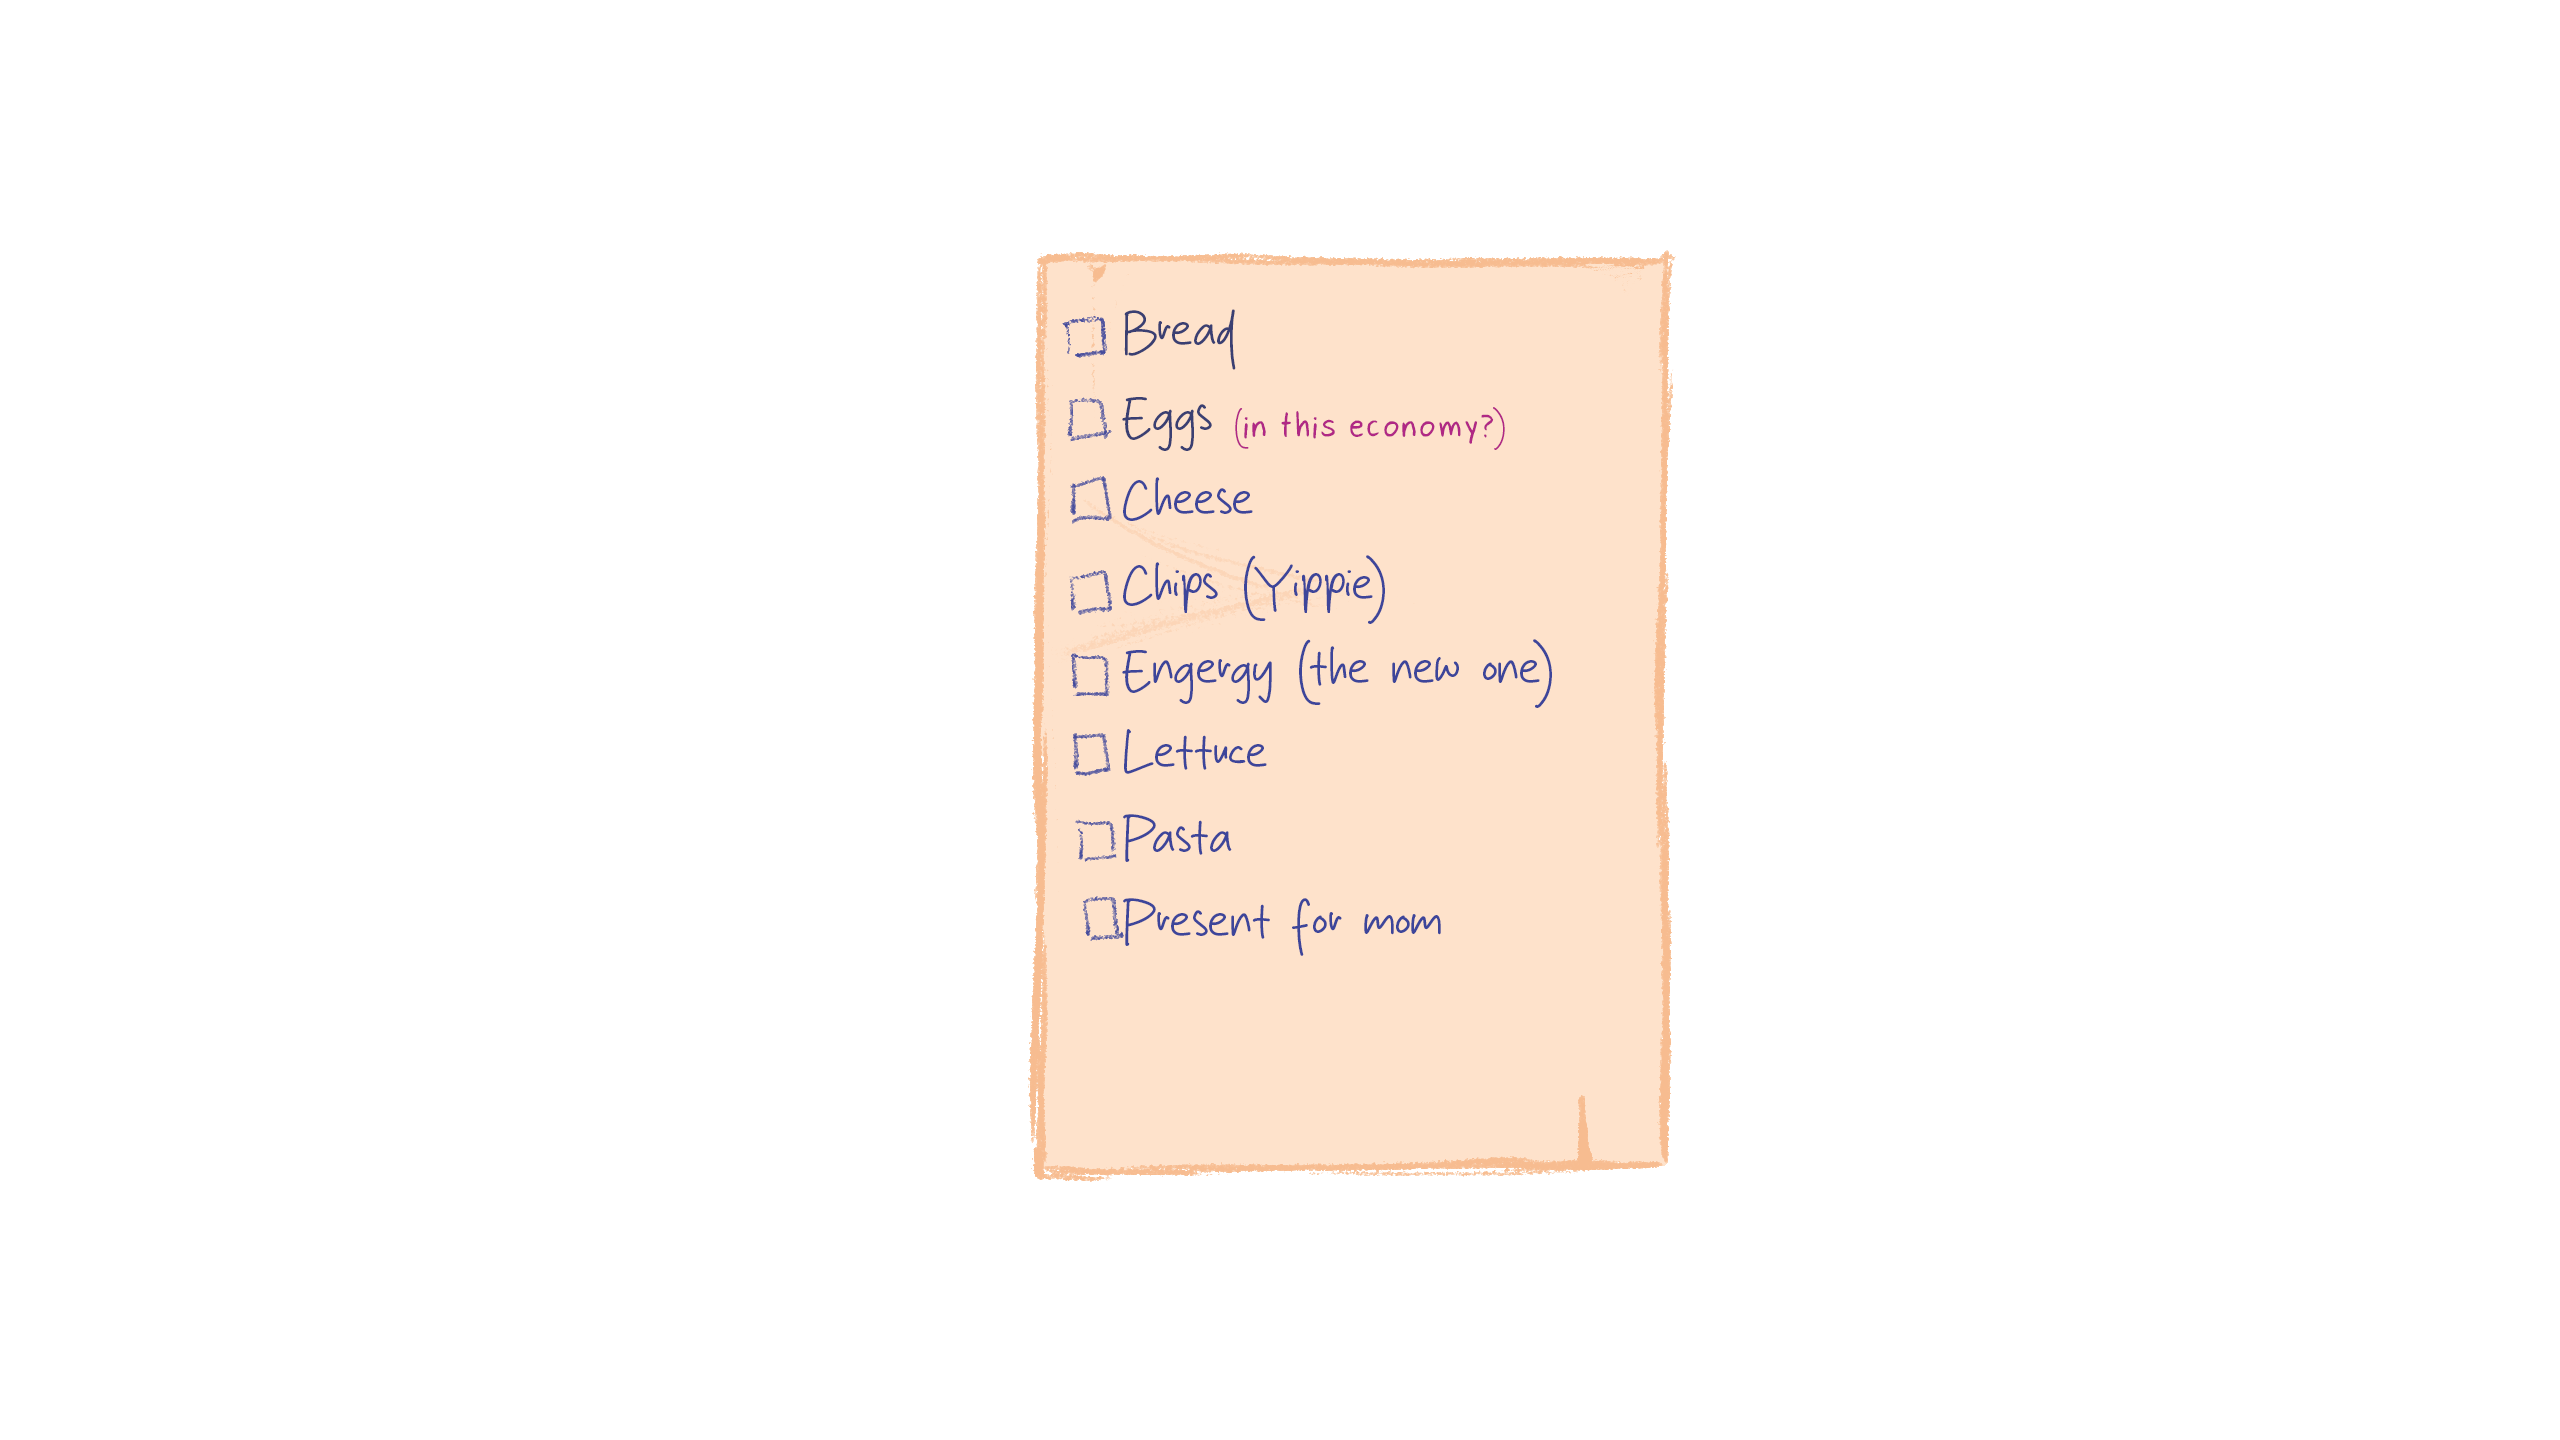 Bread
Eggs (in this economy?)
Cheese
Chips (Yippie)
Engergy (the new one)
Lettuce
Pasta
Present for mom